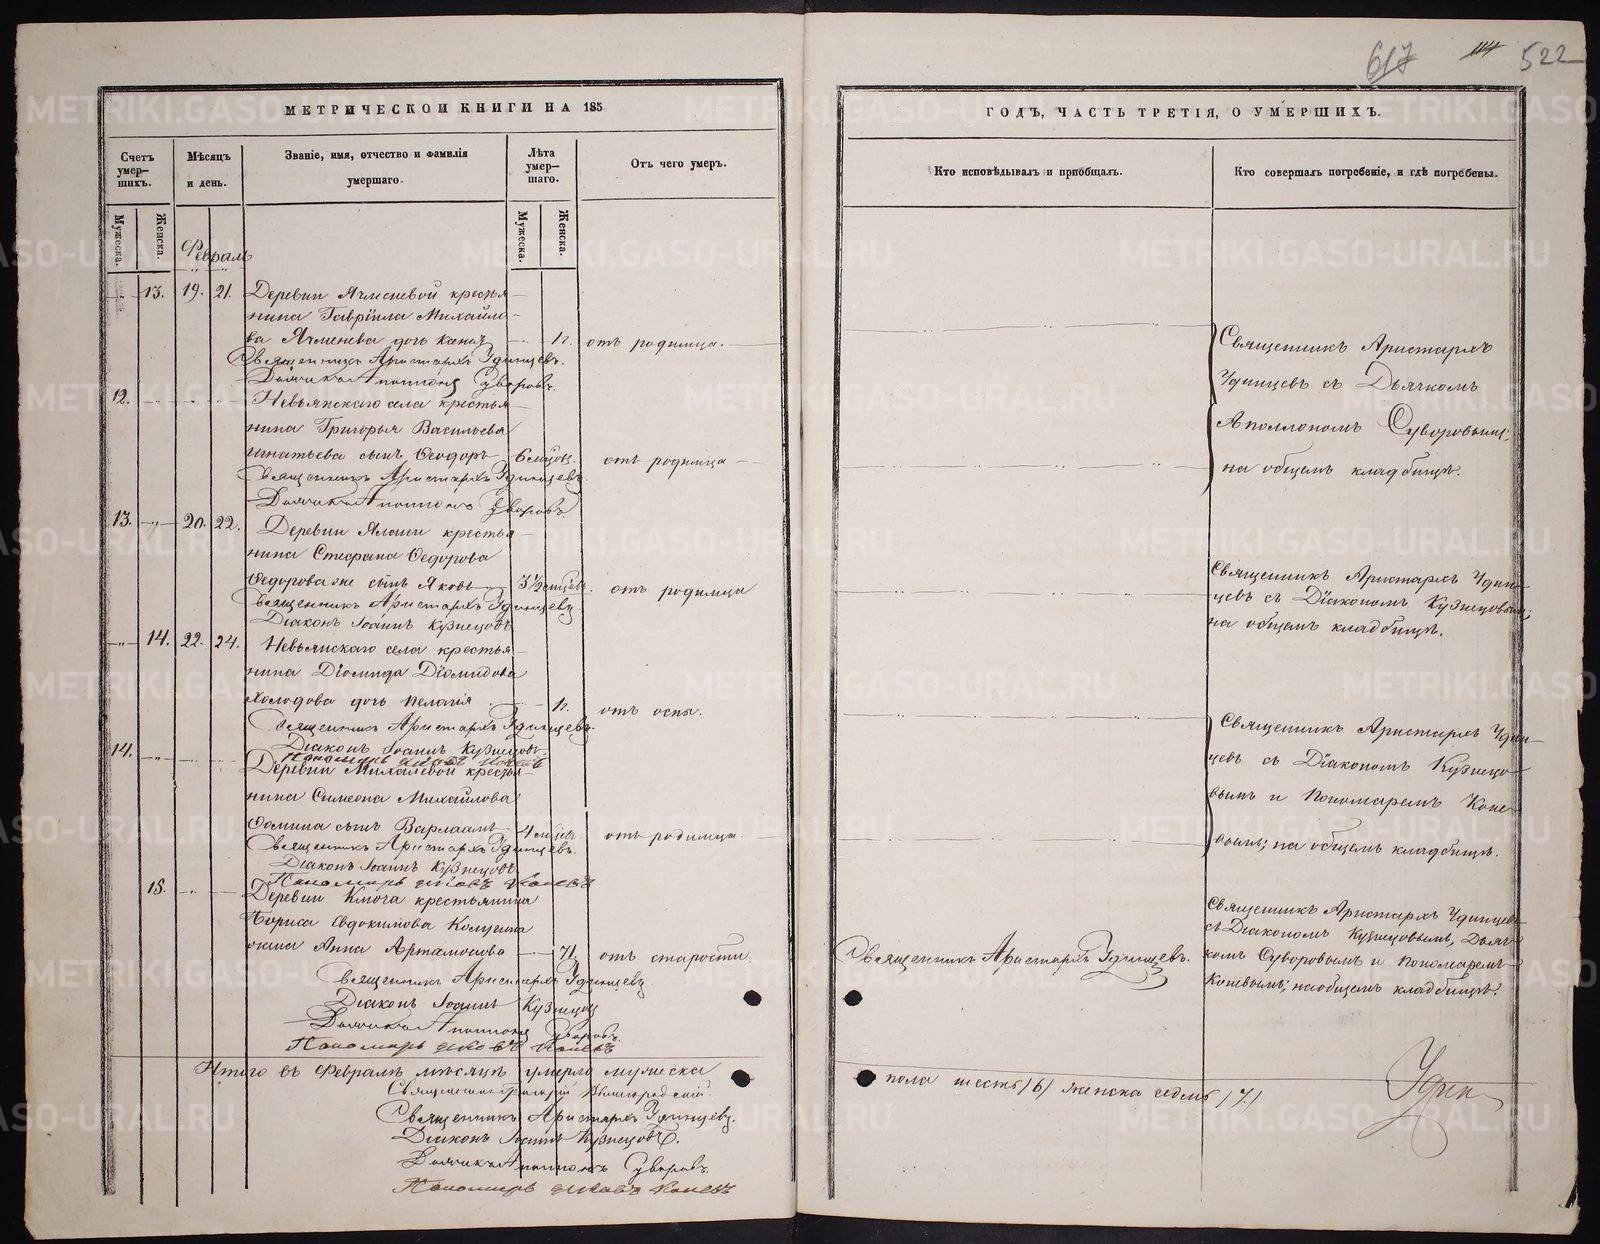 617 114 522
МЕТРИЧЕСКОЙ КНИГИ НА 185
Счетъ умер-шихъ.
Мѣсяцъ и день.
Званіе, имя, отчество и фамилія умершаго.
Лѣта умер-шаго.
Отъ чего умеръ.
Мужеска. Женска.
Мужеска. Женска.
Февраль
13. 19. 21. Деревни Ячменевой крестья-
нина Гавріила Михайло-
ва Ячменева дочь отъ родимца.
Священникъ Аристархъ Удинцевъ.
Дьячикъ Аполлонъ Суворовъ.
12. Невьянскаго села крестья-
нина Григорья Васильева
Игнатьева сынъ Ѳеодоръ 6 отъ родимца
Священникъ Аристархъ Удинцевъ
Дьячикъ Аполлонъ Суворовъ.
13. 20. 22. Деревни Ялани крестья-
нина Стефана Ѳедорова
Ѳедорова же сынъ Яковъ 3½ отъ родимца
Священникъ Аристархъ Удинцевъ
Діаконъ Іоаннъ Кузнецовъ
14. 22. 24. Невьянскаго села крестья-
нина Діомида Діомидова
Холодова дочь Пелагія отъ оспы.
Священникъ Аристархъ Удинцевъ.
Діаконъ Іоаннъ Кузнецовъ.
Пономарь Яковъ Коневъ
14. Деревни крестья-
нина Симеона Михайлова
Ѳомина сынъ Варлаамъ 4 отъ родимца.
Священникъ Аристархъ Удинцевъ.
Діаконъ Іоаннъ Кузнецовъ
Пономарь Яковъ Коневъ
15. Деревни Ключа крестьянина
Бориса Евдокимова
жена Анна Артамонова 71. отъ старости
Священникъ Аристархъ Удинцевъ.
Діаконъ Іоаннъ Кузнецовъ
Дьячикъ Аполлонъ Суворовъ.
Пономарь Яковъ Коневъ
Итого въ Февралѣ мѣсяцѣ умерло мужеска
Священникъ Григорій
Священникъ Аристархъ Удинцевъ.
Діаконъ Іоаннъ Кузнецовъ.
Дьячикъ Аполлонъ Суворовъ.
Пономарь Яковъ Коневъ
ГОДЪ, ЧАСТЬ ТРЕТІЯ, О УМЕРШИХЪ.
Кто исповѣдывалъ и пріобщалъ.
Кто совершалъ погребеніе, и гдѣ погребены.
Священникъ Аристархъ
Удинцевъ съ Дьячкомъ
Аполлономъ Суворовымъ;
на общемъ кладбищѣ.
Священникъ Аристархъ Удин-
цевъ съ Діакономъ Кузнецовымъ;
на общемъ кладбищѣ.
Священникъ Аристархъ Удин-
цевъ съ Діакономъ Кузнецо-
вымъ и Пономаремъ Коне-
вымъ; на общемъ кладбищѣ.
Священникъ Аристархъ Удинцевъ.
Священникъ Аристархъ Удинцевъ
съ Діакономъ Кузнецовымъ, Дьяч-
комъ Суворовымъ и Пономаремъ
Коневымъ; на общемъ кладбищѣ.
пола шесть /6/ женска седмь /7/
METRIKI.GASO-URAL.RU